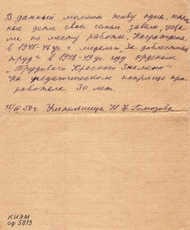 В данный момент живу одна, так-
как дети свои семьи завели, уеха-
ли по месту работы. Награждена
в 1945-46 уч. г. медалью „За доблестный
труд" в 1948-49 уч. году орденом
„Трудового Красного Знамени"
На педагогическом поприще про-
работала 30 лет.
50 г. Учительница
КИЭМ
оф 5813